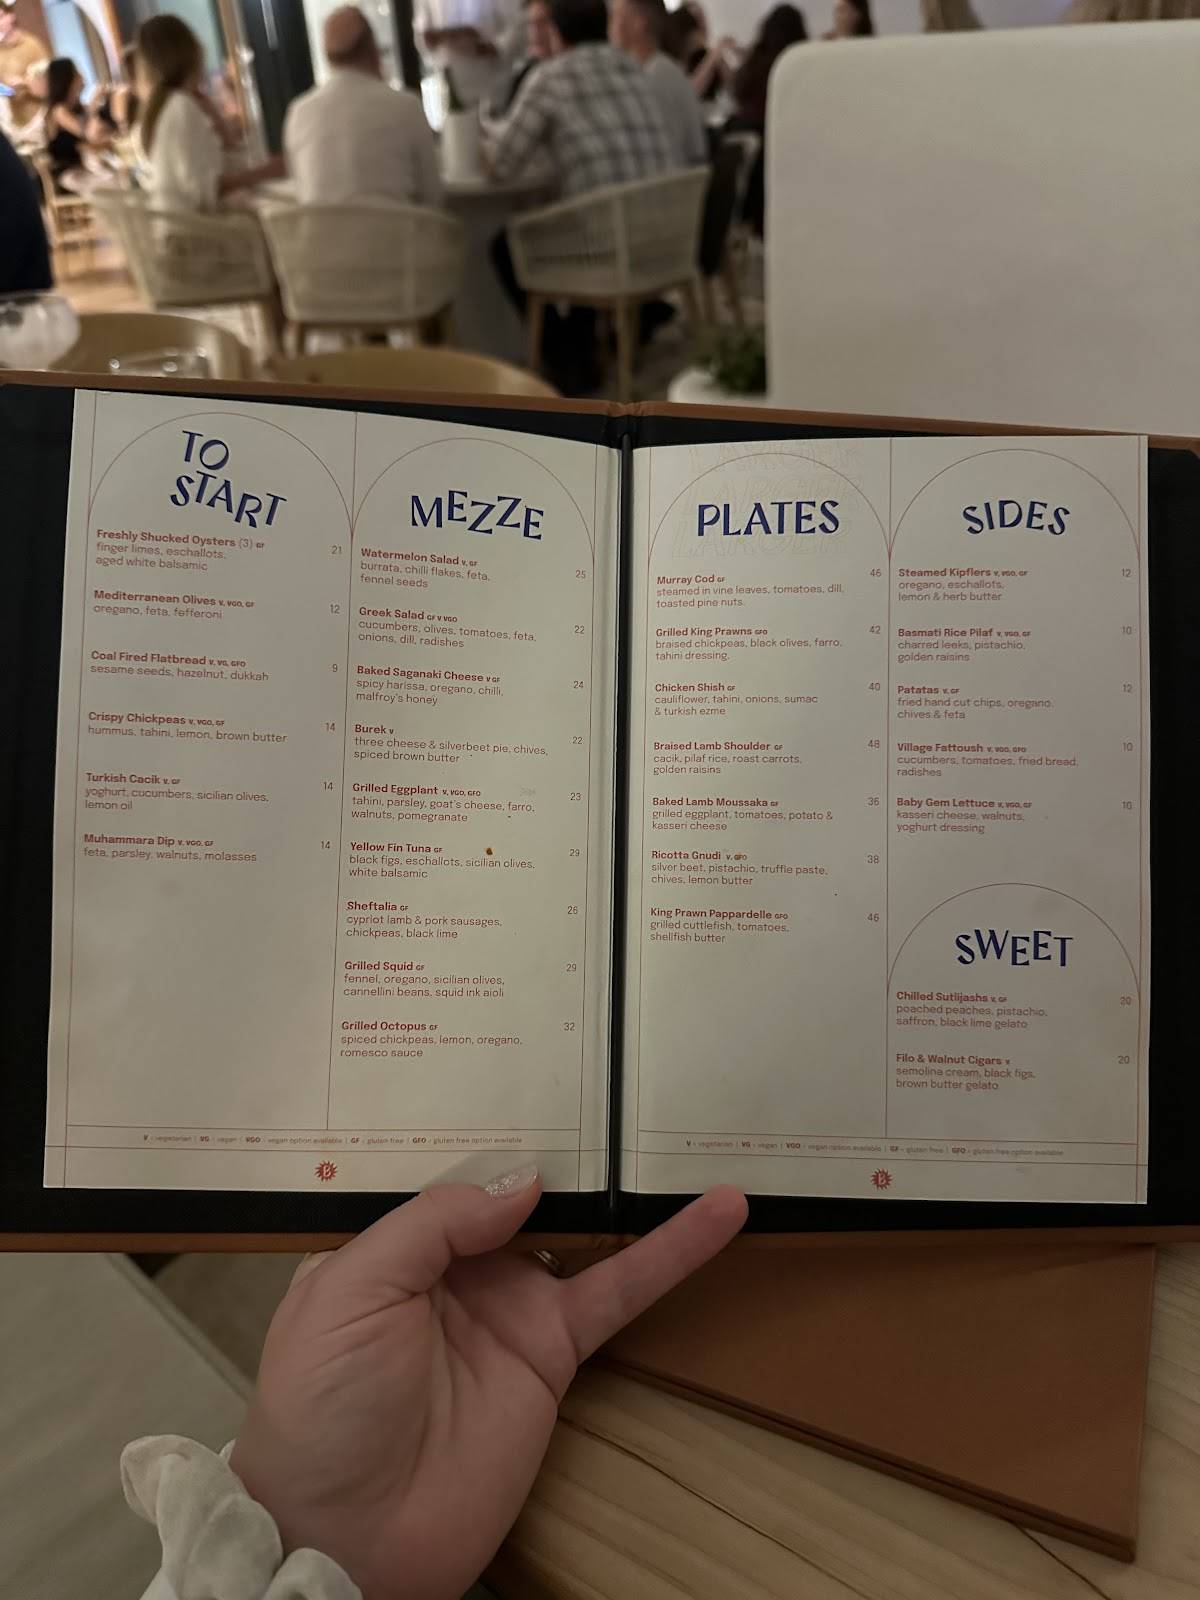 TO
START
Freshly Shucked Oysters (3) GF 21
finger limes, eschallots,
aged white balsamic
Mediterranean Olives V, VGO, GF 12
oregano, feta, fefferoni
Coal Fired Flatbread V, VG, GFO 9
sesame seeds, hazelnut, dukkah
Crispy Chickpeas V, VGO, GF 14
hummus, tahini, lemon, brown butter
Turkish Cacik V, GF 14
yoghurt, cucumbers, sicilian olives,
lemon oil
Muhammara Dip V, VGO, GF 14
feta, parsley, walnuts, molasses
MEZZE
Watermelon Salad V, GF 25
burrata, chilli flakes, feta,
fennel seeds
Greek Salad GF V VGO 22
cucumbers, olives, tomatoes, feta,
onions, dill, radishes
Baked Saganaki Cheese V GF 24
spicy harissa, oregano, chilli,
malfroy's honey
Burek V 22
three cheese & silverbeet pie, chives,
spiced brown butter
Grilled Eggplant V, VGO, GFO 23
tahini, parsley, goat's cheese, farro,
walnuts, pomegranate
Yellow Fin Tuna GF 29
black figs, eschallots, sicilian olives,
white balsamic
Sheftalia GF 26
cypriot lamb & pork sausages,
chickpeas, black lime
Grilled Squid GF 29
fennel, oregano, sicilian olives,
cannellini beans, squid ink aioli
Grilled Octopus GF 32
spiced chickpeas, lemon, oregano,
romesco sauce
V - vegetarian | VG - vegan | VGO - vegan option available | GF - gluten free | GFO - gluten free option available
LARGER
LARGER
PLATES
LARGER
Murray Cod GF 46
steamed in vine leaves, tomatoes, dill,
toasted pine nuts.
Grilled King Prawns GFO 42
braised chickpeas, black olives, farro,
tahini dressing.
Chicken Shish GF 40
cauliflower, tahini, onions, sumac
& turkish ezme
Braised Lamb Shoulder GF 48
cacik, pilaf rice, roast carrots,
golden raisins
Baked Lamb Moussaka GF 36
grilled eggplant, tomatoes, potato &
kasseri cheese
Ricotta Gnudi V, GFO 38
silver beet, pistachio, truffle paste,
chives, lemon butter
King Prawn Pappardelle GFO 46
grilled cuttlefish, tomatoes,
shellfish butter
SIDES
Steamed Kipflers V, VGO, GF 12
oregano, eschallots,
lemon & herb butter
Basmati Rice Pilaf V, VGO, GF 10
charred leeks, pistachio,
golden raisins
Patatas V, GF 12
fried hand cut chips, oregano,
chives & feta
Village Fattoush V, VGO, GFO 10
cucumbers, tomatoes, fried bread,
radishes
Baby Gem Lettuce V, VGO, GF 10
kasseri cheese, walnuts,
yoghurt dressing
SWEET
Chilled Sutlijashs V, GF 20
poached peaches, pistachio,
saffron, black lime gelato
Filo & Walnut Cigars V 20
semolina cream, black figs,
brown butter gelato
V - vegetarian | VG - vegan | VGO - vegan option available | GF - gluten free | GFO - gluten free option available